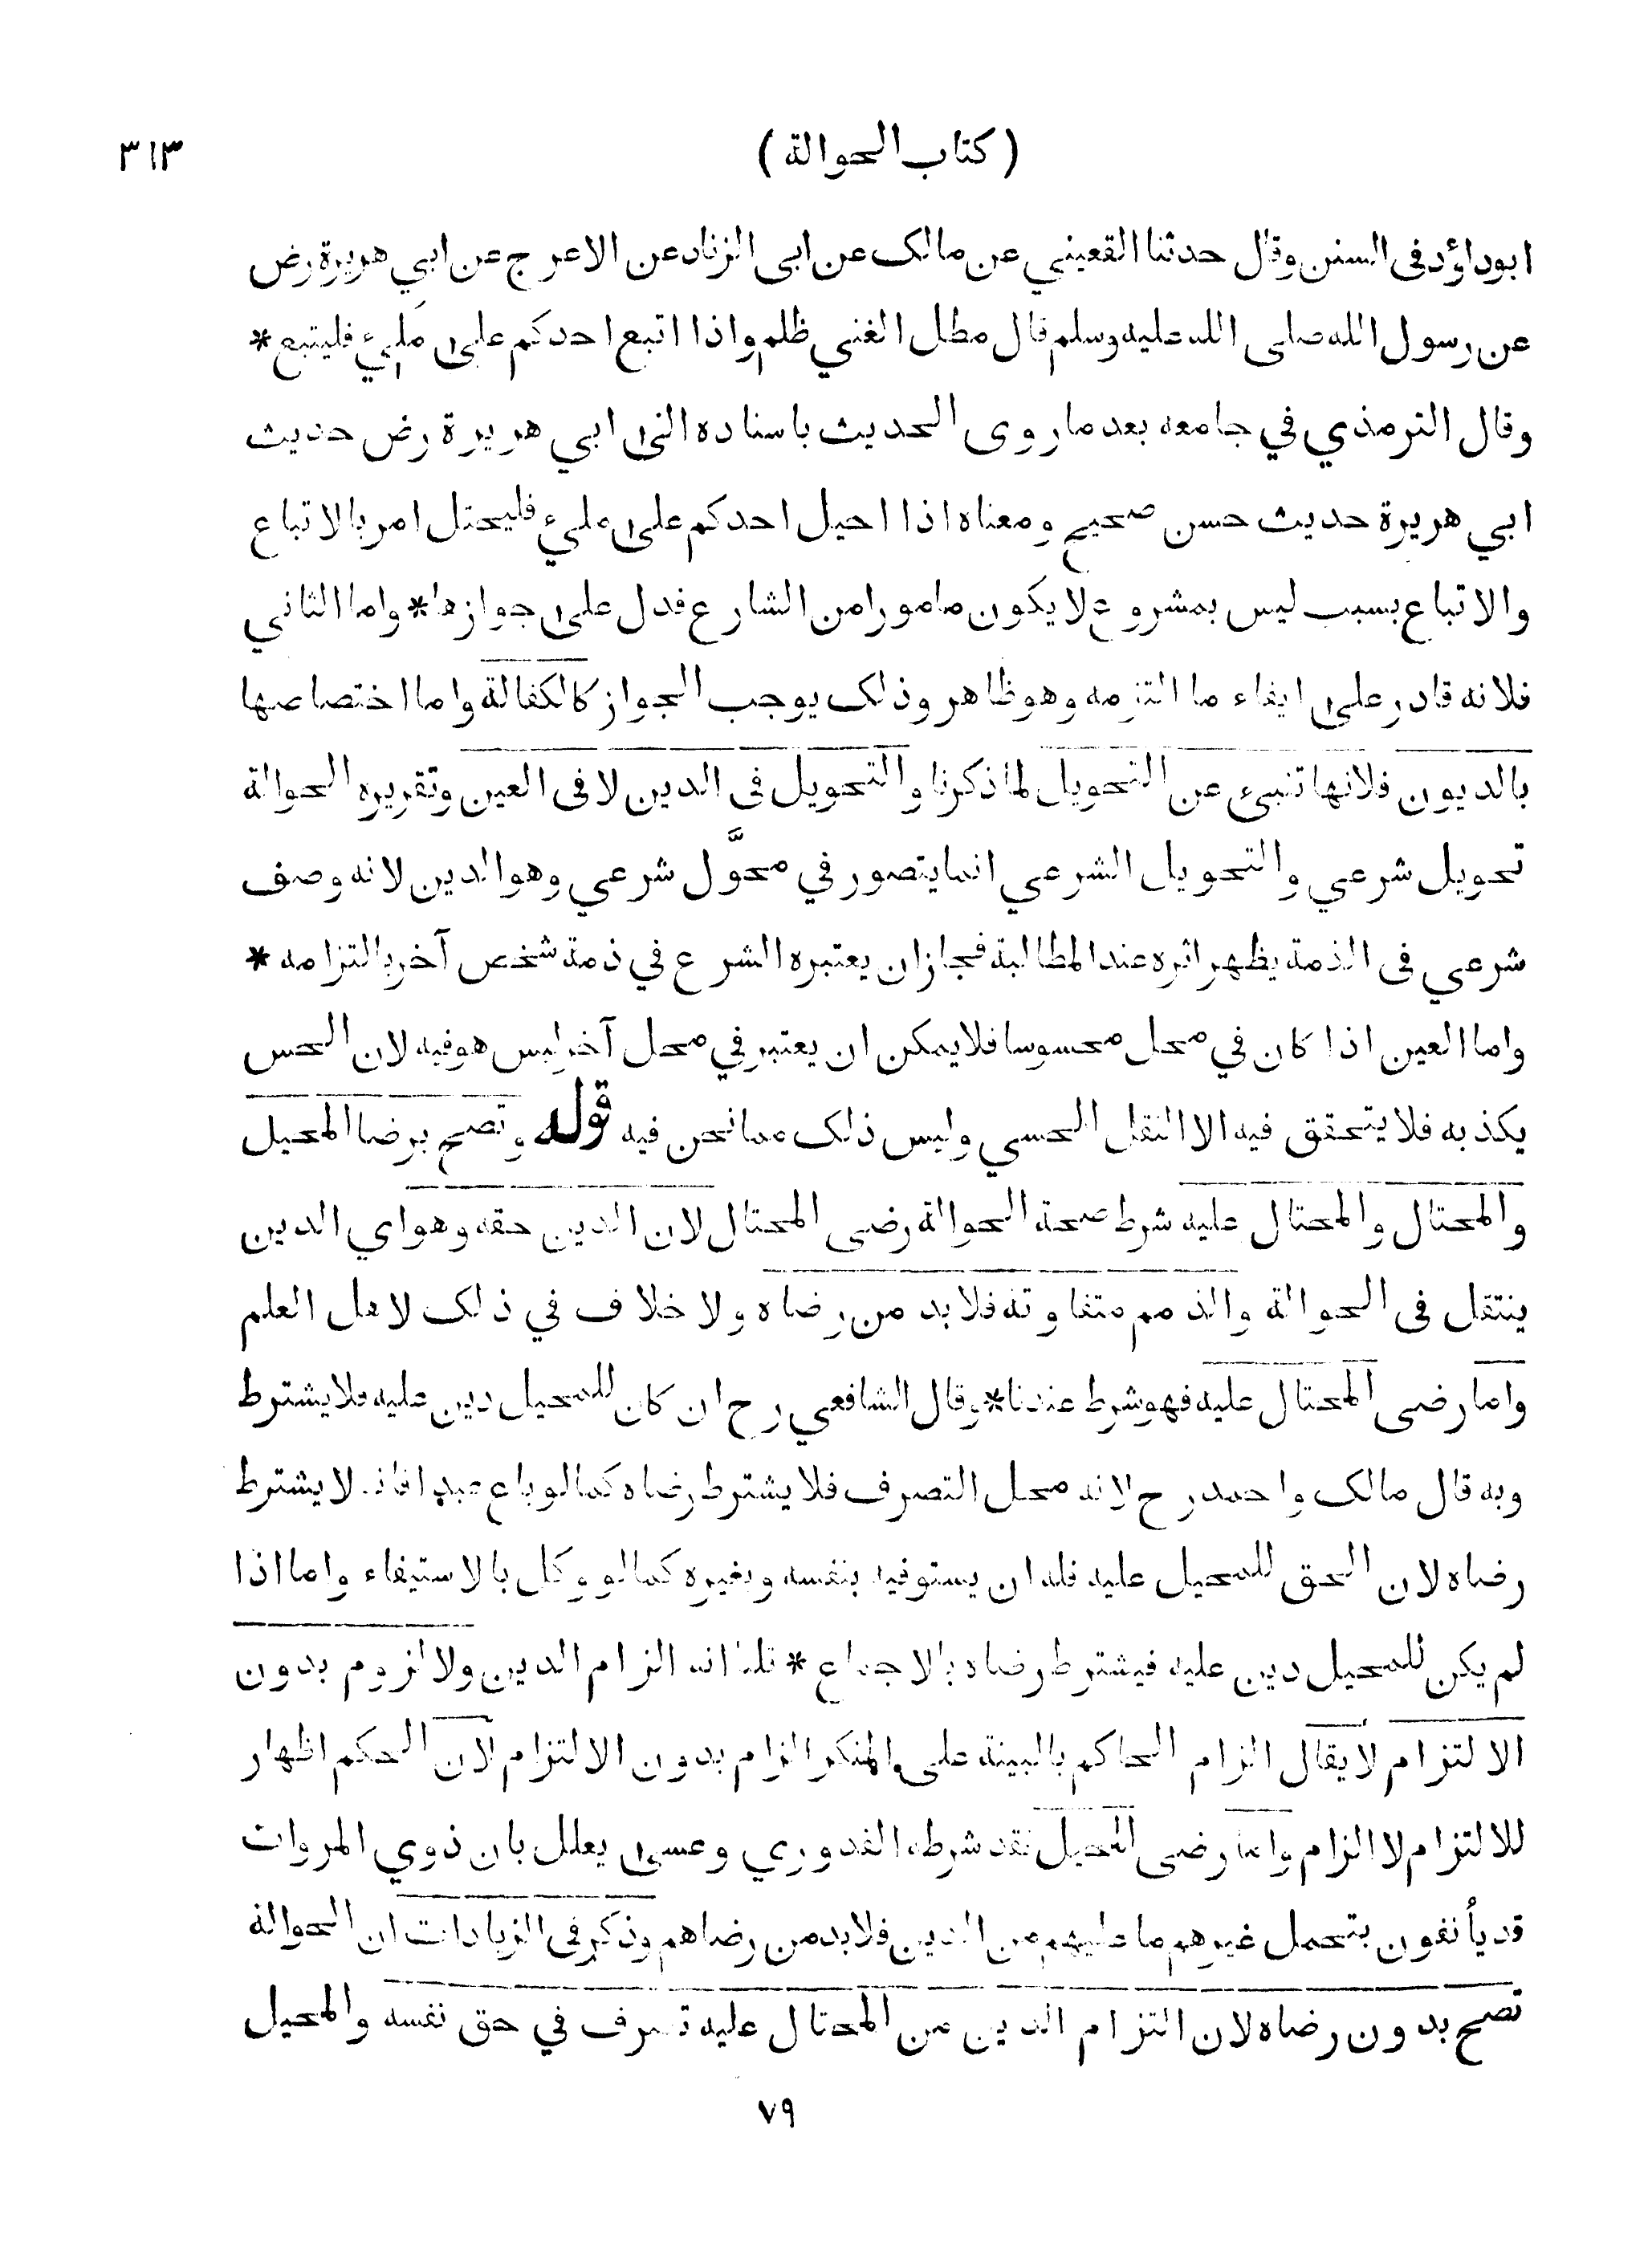 ( كتاب الحوالة ) ٣١٣
ابو داؤد في السنن وقال حدثنا القعيني عن مالك عن ابي الزناد عن الاعرج عن ابي هريرة رض
عن رسول الله صلى الله عليه وسلم قال مطل الغني ظلم واذا اتبع احدكم على مَليء فليتبع *
وقال الترمذي في جامعه بعد ما روى الحديث باسناده الى ابي هريرة رض حديث
ابي هريرة حديث حسن صحيح ومعناه اذا احيل احدكم على مليء فليحتل امر بالاتباع
والاتباع بسبب ليس بمشروع لا يكون مامورا من الشارع فدل على جوازها * واما الثاني
فلانه قادر على ايفاء ما التزمه وهو ظاهر وذلك يوجب الجواز كالكفالة واما اختصاصها
بالديون فلانها تنبيء عن التحويل لما ذكرنا والتحويل في الدين لا في العين وتقريره الحوالة
تحويل شرعي والتحويل الشرعي انما يتصور في محوَّل شرعي وهو الدين لانه وصف
شرعي في الذمة يظهر اثره عند المطالبة فجاز ان يعتبره الشرع في ذمة شخص آخر بالتزامه *
واما العين اذا كان في محل محسوسا فلا يمكن ان يعتبر في محل آخر ليس هو فيه لان الحس
يكذبه فلا يتحقق فيه الا النقل الحسي وليس ذلك مما نحن فيه قوله وتصح برضا المحيل
والمحتال والمحتال عليه شرط صحة الحوالة رضى المحتال لان الدين حقه وهو اي الدين
ينتقل في الحوالة والذمم متفاوتة فلا بد من رضاه ولا خلاف في ذلك لاهل العلم
واما رضى المحتال عليه فهو شرط عندنا * وقال الشافعي رح ان كان للمحيل دين عليه فلا يشترط
وبه قال مالك واحمد رح لانه محل التصرف فلا يشترط رضاه كما لو باع عبدا فانه لا يشترط
رضاه لان الحق للمحيل عليه فله ان يستوفيه بنفسه وبغيره كما لو وكل بالاستيفاء واما اذا
لم يكن للمحيل دين عليه فيشترط رضاه بالاجماع * قلنا انه الزام الدين ولا لزوم بدون
الالتزام لا يقال الزام الحاكم بالبينة على المنكر الزام بدون الالتزام لان الحكم اظهار
للالتزام لا الزام واما رضى المحيل فقد شرطه القدوري وعسى يعلل بان ذوي المروات
قد يأنفون بتحمل غيرهم ما عليهم من الدين فلا بد من رضاهم وذكر في الزيادات ان الحوالة
تصح بدون رضاه لان التزام الدين من المحتال عليه تصرف في حق نفسه والمحيل
٧٩